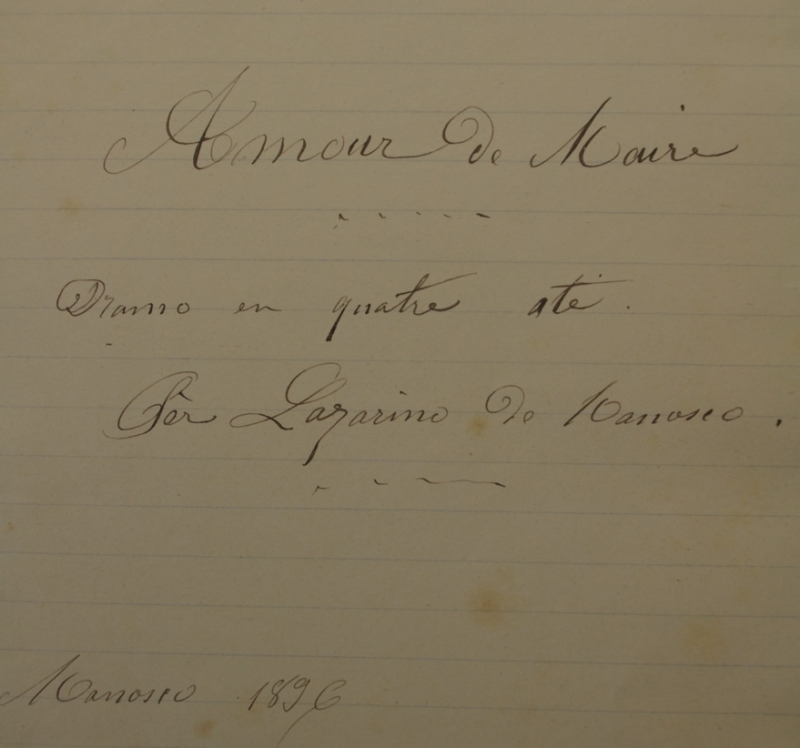 Amour de Maire
Dramo en quatre ate.
Pèr Lazarino de Manosco.
Manosco 1896